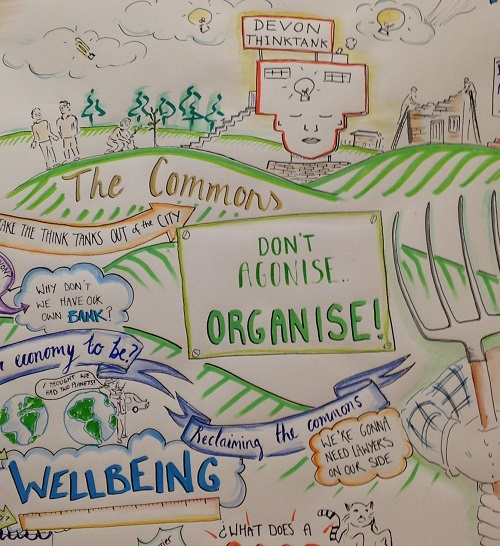 DEVON
THINKTANK
The Commons
TAKE THE THINK TANKS OUT of the CITY
DON'T
AGONISE..
ORGANISE!
WHY DON'T
WE HAVE OUR
OWN BANK?
economy to be?
I THOUGHT WE
HAD TWO PLANETS!
Reclaiming the commons
WE'RE GONNA
NEED LAWYERS
ON OUR SIDE
WELLBEING
¿WHAT DOES A